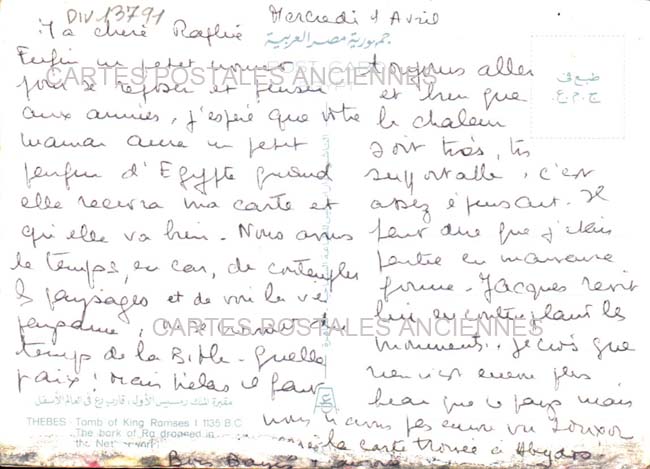 DIV 13791
Mercredi 1 Avril
Ma chère
جمهورية مصر العربية
Enfin un petit moment
POST CARD
CARTES POSTALES ANCIENNES
pour se reposer et penser
aux amies, j'espère que votre
maman aura un petit
parfum d'Egypte quand
elle recevra ma carte et
qu'elle va bien. Nous avons
le temps, en car, de contempler
les paysages et de voir la vie
paysanne,
CARTES POSTALES ANCIENNES
temps de la Bible. Quelle
paix! Mais hélas il faut
toujours aller
et bien que
la chaleur
soit très, très
supportable, c'est
assez épuisant. Il
faut dire que j'étais
partie en mauvaise
forme. Jacques revit
en contemplant les
monuments. Je crois que
rien n'est encore plus
beau que ce pays mais
nous n'avons pas encore vu Louxor
la carte trouvée à Abydos
Bons Baisers
طبع في
ج.م.ع.
مقبرة الملك رمسيس الأول
THEBES - Tomb of King Ramses I 1135 B.C
The bark of Ra
the